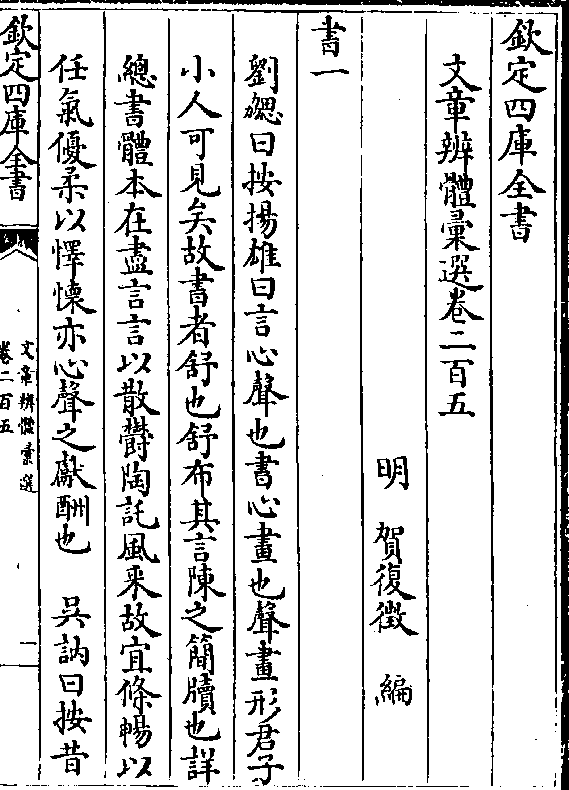 欽定四庫全書
文章辨體彙選卷二百五
明 賀復徵 編
書一
劉勰曰按揚雄曰言心聲也書心畫也聲畫形君子
小人可見矣故書者舒也舒布其言陳之簡牘也詳
總書體本在盡言言以散鬱陶託風采故宜條暢以
任氣優柔以懌懷亦心聲之獻酬也 吳訥曰按昔
欽定四庫全書
文章辨體彙選
卷二百五
一